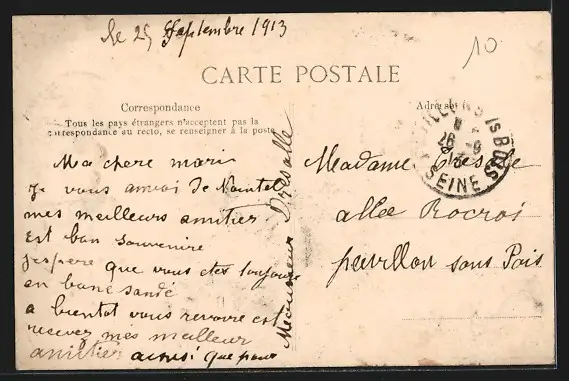 le 25 Septembre 1913
10
CARTE POSTALE
Correspondance
Tous les pays étrangers n'acceptent pas la
correspondance au recto, se renseigner à la poste
Adresse
Ma chere marie
Je vous anvoi de Naintel
mes meilleurs amitier
est bon souvenire
j'espere que vous etes toujoure
en bone sandé
a bientot vous revoire est
recevez mes meilleur
amitier ainsi que pour
Meounsieur Dresalle
Madame Dresalle
allee Rocroi
pavillon sous Pois
LES PAVILLONS Is BOIS
26 -9
SEINE